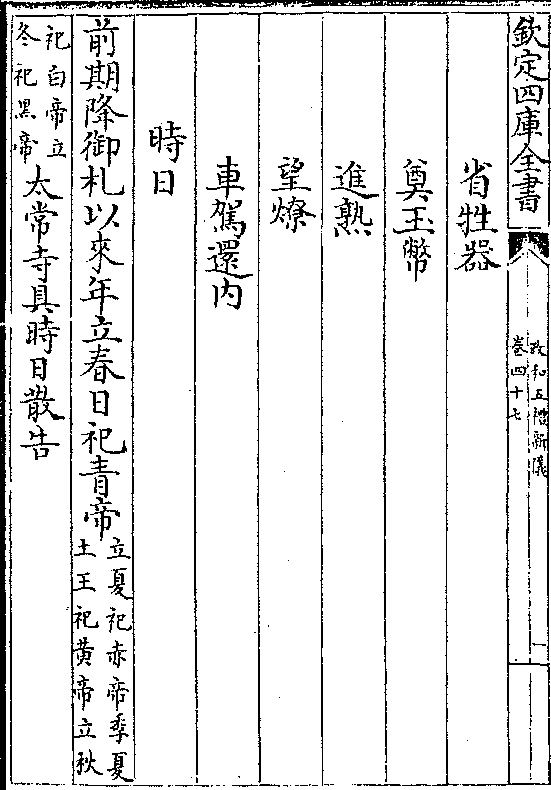 欽定四庫全書
政和五禮新儀
卷四十七
一
省牲器
奠玉幣
進熟
望燎
車駕還内
時日
前期降御札以來年立春日祀青帝立夏祀赤帝季夏土王祀黄帝立秋
祀白帝立冬祀黑帝太常寺具時日散告